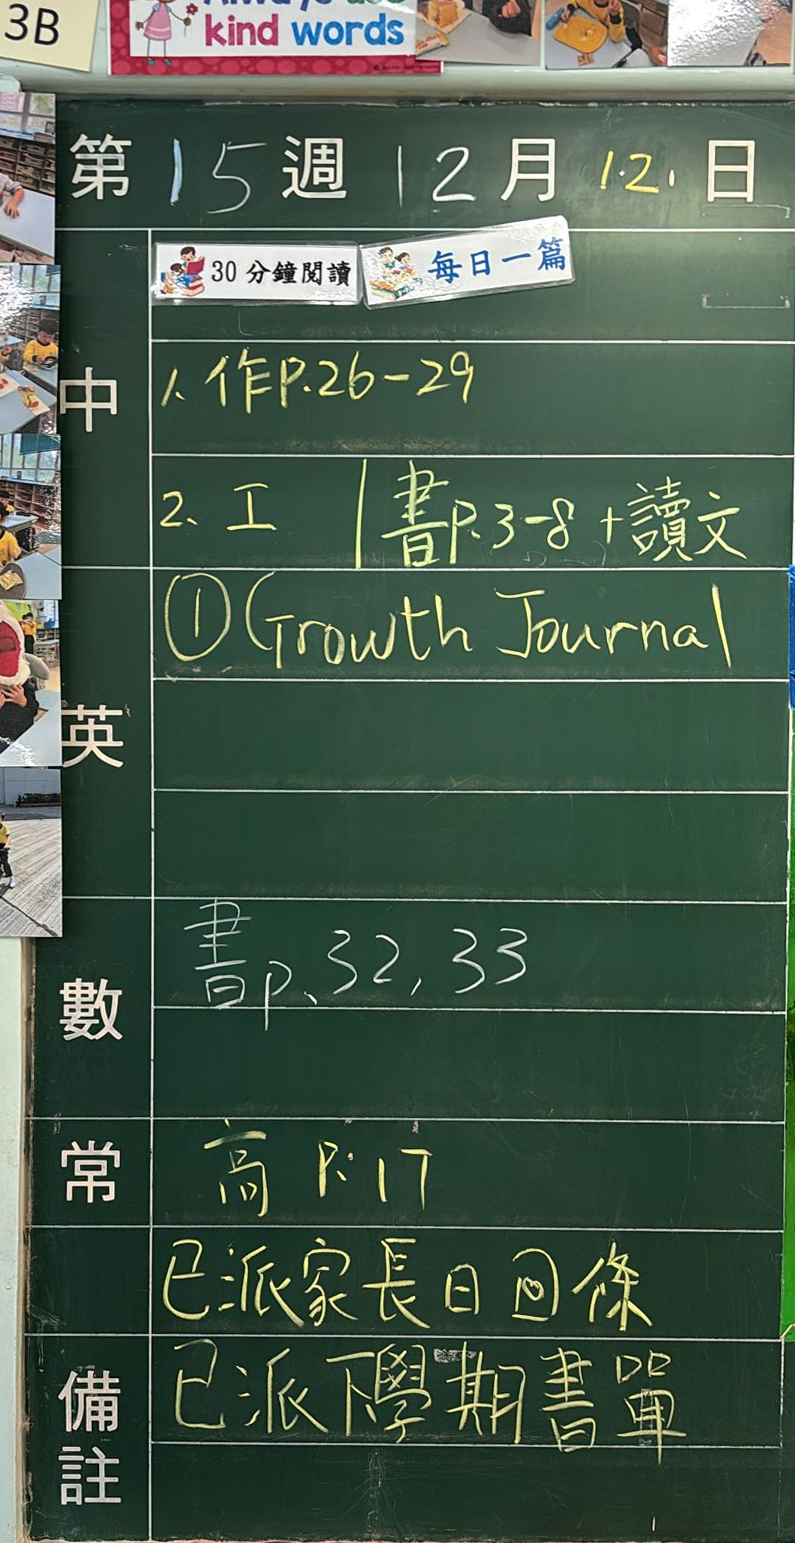 3B
kind words
第15週12月12日
30分鐘閱讀 每日一篇
中
1、作P.26-29
2、工 書P.3-8+讀文
英
①Growth Journal
數
書p、32,33
常
高 P.17
已派家長日回條
備註
已派下學期書單